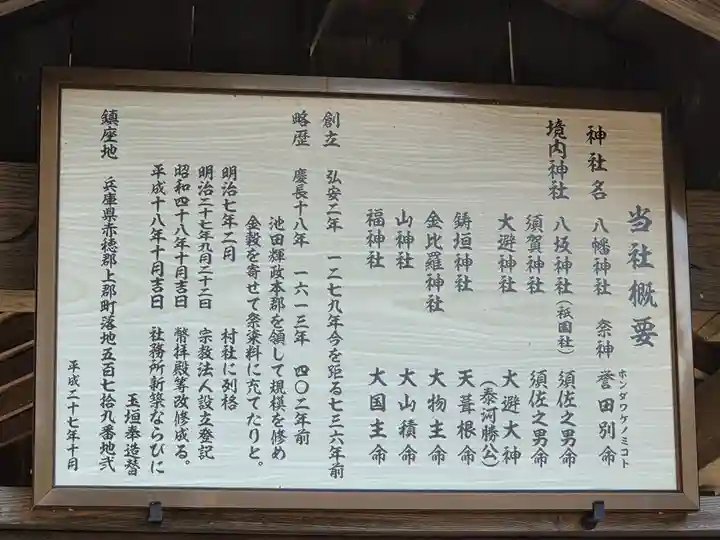 当社概要
神社名 八幡神社 祭神 誉田別命
ホンダワケノミコト
境内神社 八坂神社(祇園社) 須佐之男命
須賀神社 須佐之男命
大避神社 大避大神
(秦河勝公)
鋳垣神社 天葺根命
金比羅神社 大物主命
山神社 大山積命
福神社 大国主命
創立 弘安二年 一二七九年今を距る七三六年前
略歴 慶長十八年 一六一三年 四〇二年前
池田輝政本郡を領して規模を修め
金穀を寄せて祭粢料に充てたりと。
明治七年二月 村社に列格
明治二十七年九月二十二日 宗教法人設立登記
昭和四十八年十月吉日 幣拝殿等改修成る。
平成十八年十月吉日 社務所新築ならびに
玉垣奉造替
鎮座地 兵庫県赤穂郡上郡町落地五百七拾九番地弐
平成二十七年十月